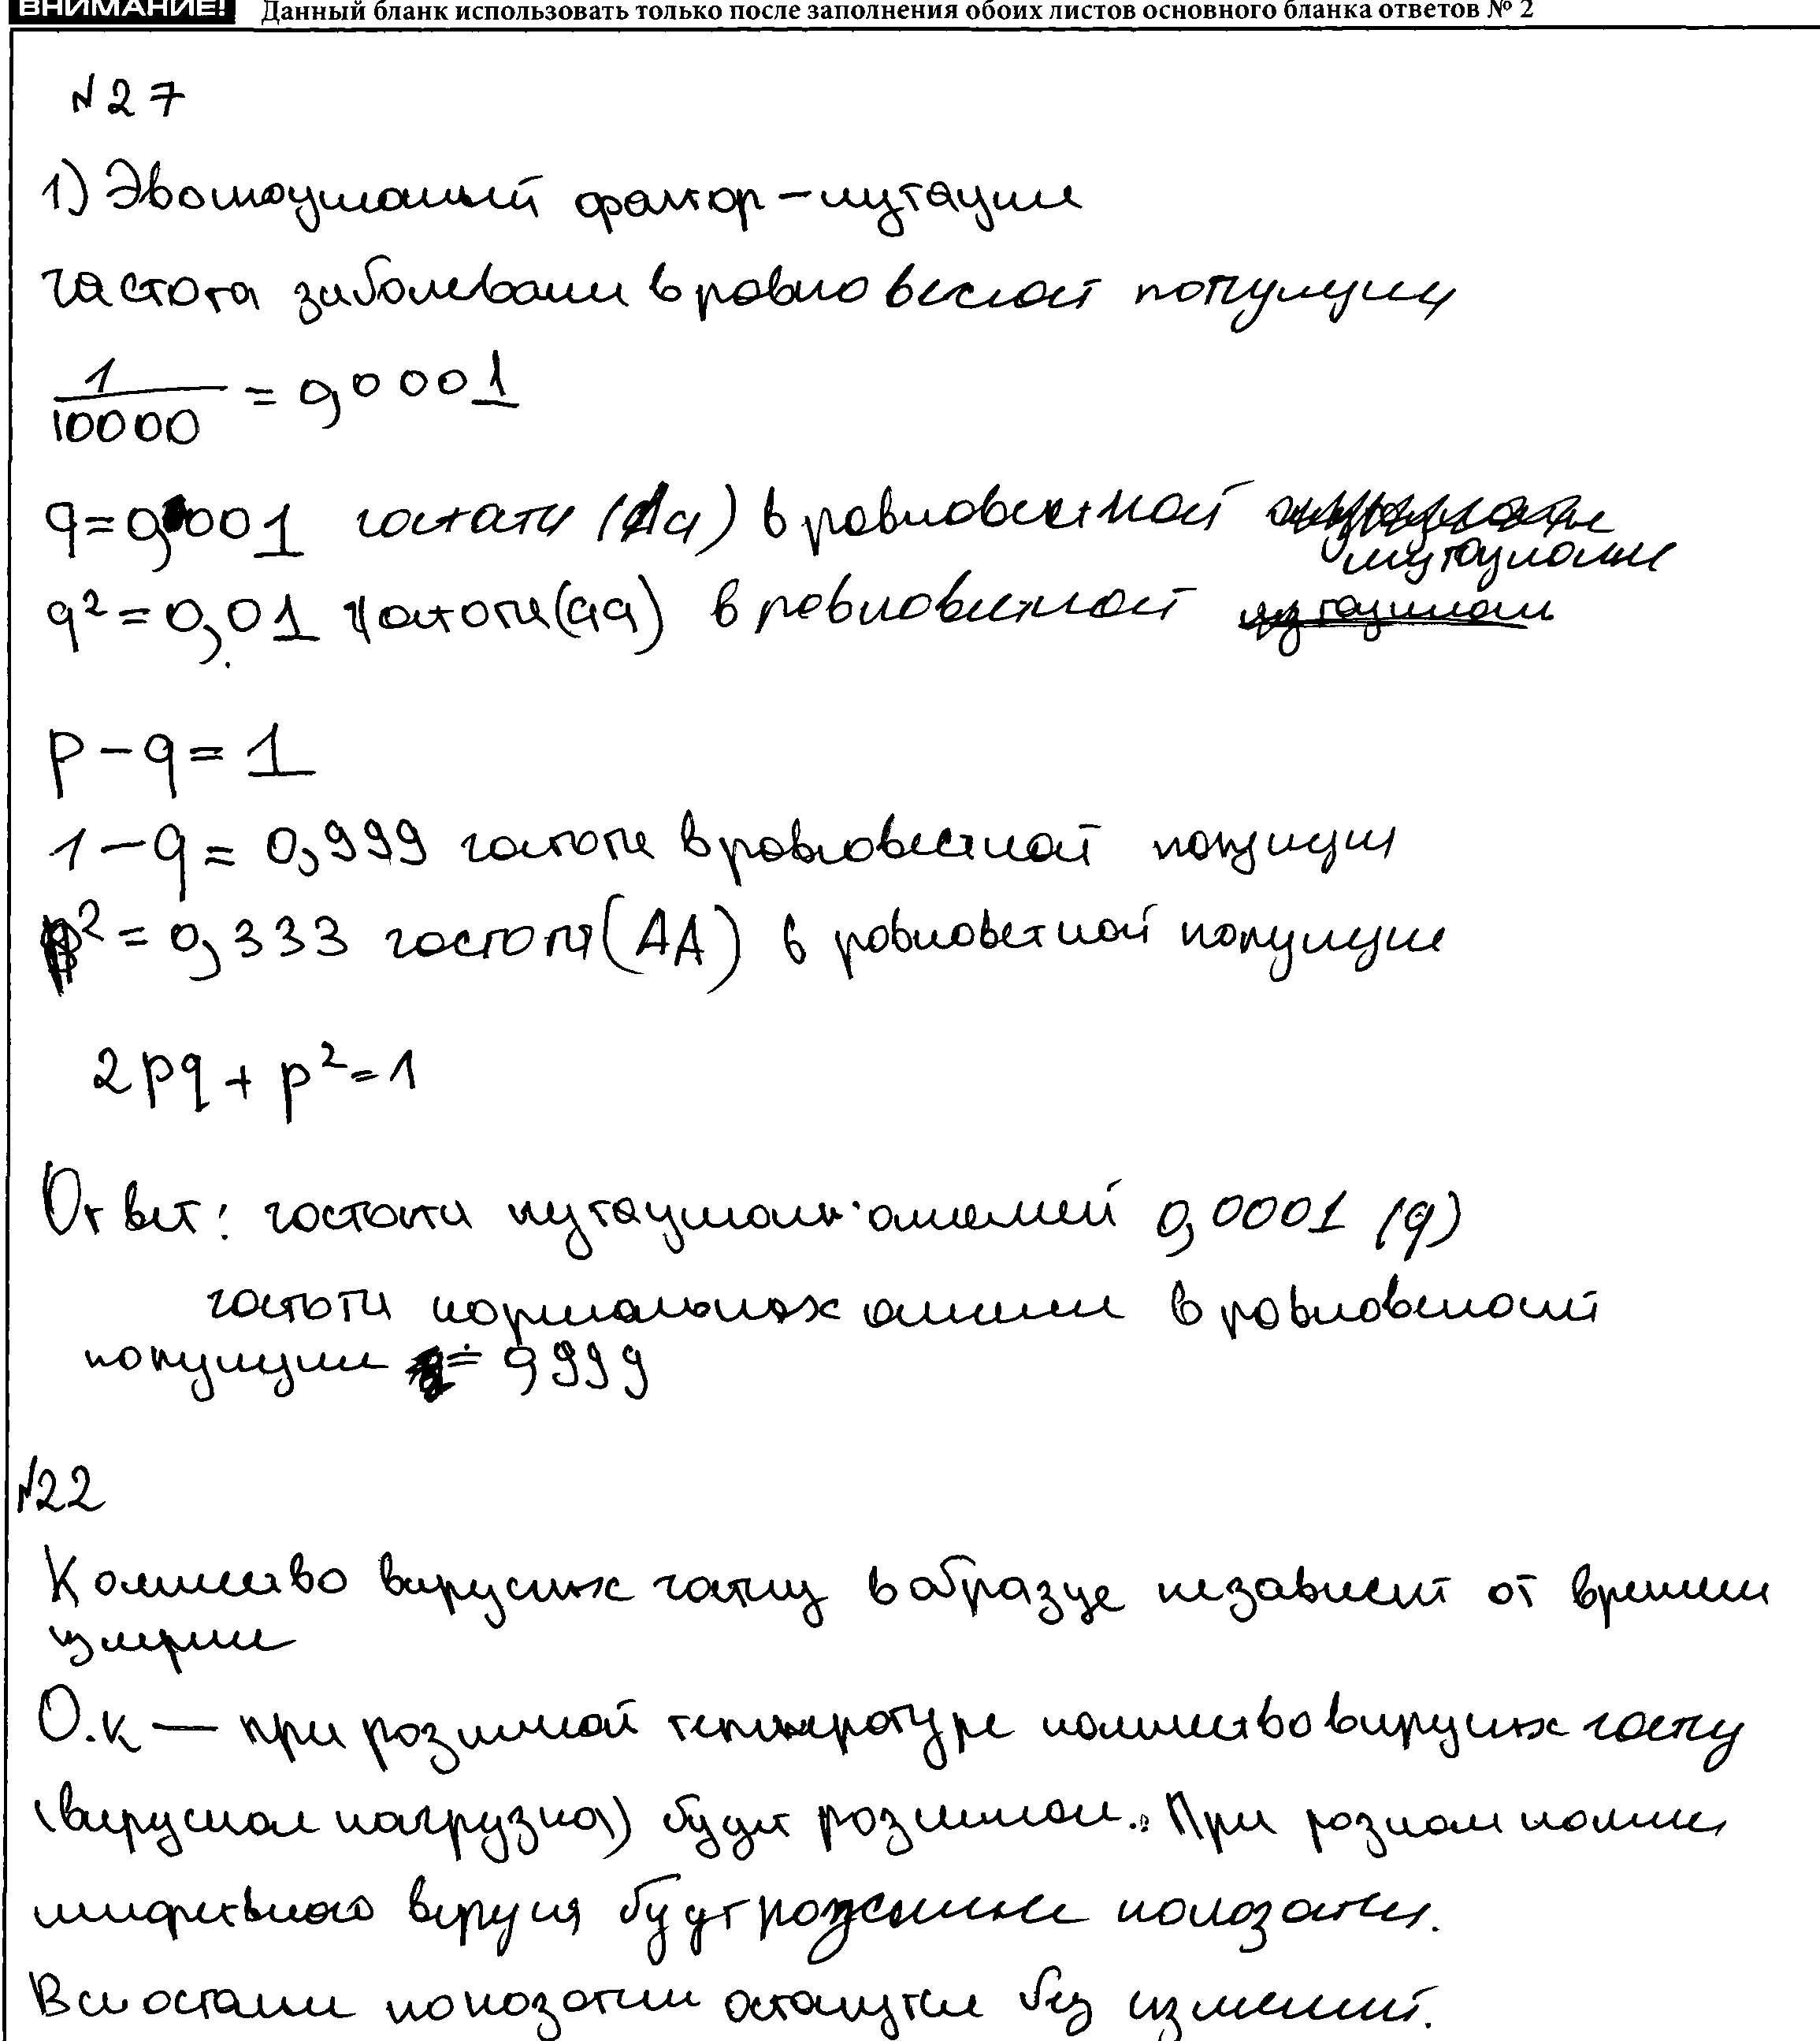 ВНИМАНИЕ! Данный бланк использовать только после заполнения обоих листов основного бланка ответов № 2
№27
1) Эволюционный фактор – мутации
частота заболевани в равновесной популяции
1/10000 = 0,0001
q=0,001 частота (Aa) в равновесной мутационн
q²=0,01 частота (aa) в равновесной
p-q=1
1-q=0,999 частота в равновесной популяции
p²=0,333 частота (AA) в равновесной популяции
2pq+p²=1
Ответ: частота мутационн аллелей 0,0001 (q)
частота нормальных аллели в равновесной
популяции = 0,999
№22
Количество вирусных частиц в образце независит от времени
измерии
О.к — при розничной температуре количество вирусных частиц
(вирусная нагрузка) будет розличная. При разном количе
вируса будут показатели.
Все осталн показатели останутся без изменений.